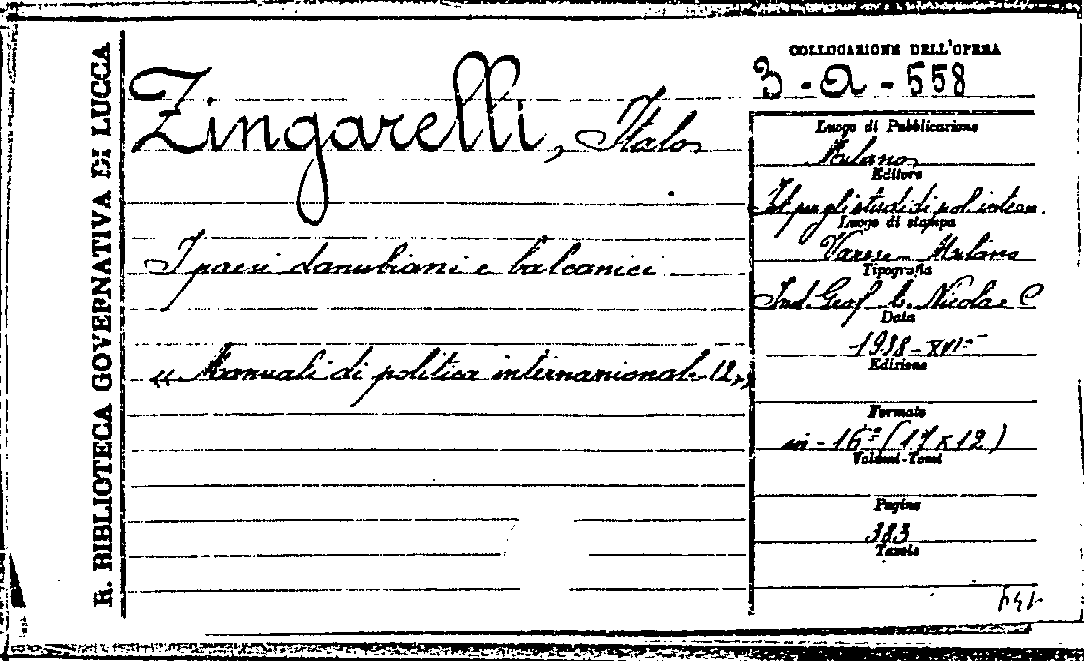 R. BIBLIOTECA GOVERNATIVA DI LUCCA
Zingarelli, Italo
I paesi danubiani e balcanici
« Manuali di politica internazionale 12 »
COLLOCAZIONE DELL'OPERA
3 - a - 558
Luogo di Pubblicazione
Milano
Editore
Ist per gli studi di pol intern.
Luogo di stampa
Varese - Milano
Tipografia
Ind. Graf. A. Nicola e C
Data
1938 - XVI
Edizione
Formato
in - 16º (17 x 12)
Volumi-Tomi
Pagine
383
Tavole